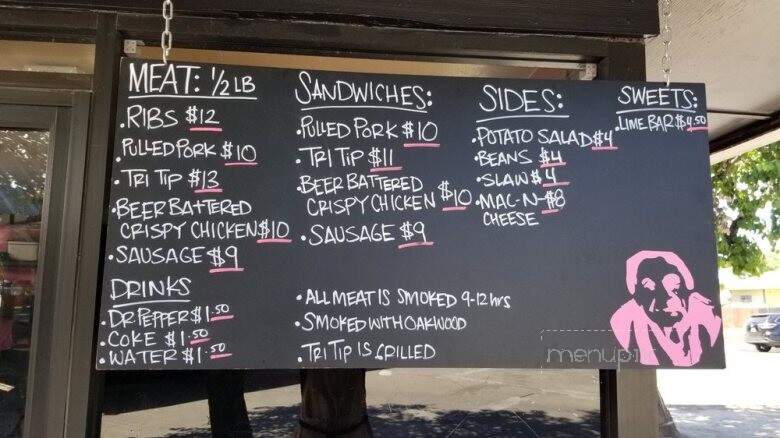 MEAT: 1/2 LB
• RIBS $12
• PULLED PORK $10
• TRI TIP $13
• BEER BATTERED
CRISPY CHICKEN $10
• SAUSAGE $9
DRINKS
• DR PEPPER $1.50
• COKE $1.50
• WATER $1.50
SANDWICHES:
• PULLED PORK $10
• TRI TIP $11
• BEER BATTERED
CRISPY CHICKEN $10
• SAUSAGE $9
• ALL MEAT IS SMOKED 9-12 hrs
• SMOKED WITH OAKWOOD
• TRI TIP IS GRILLED
SIDES:
• POTATO SALAD $4
• BEANS $4
• SLAW $4
• MAC-N- $8
CHEESE
SWEETS:
• LIME BAR $4.50